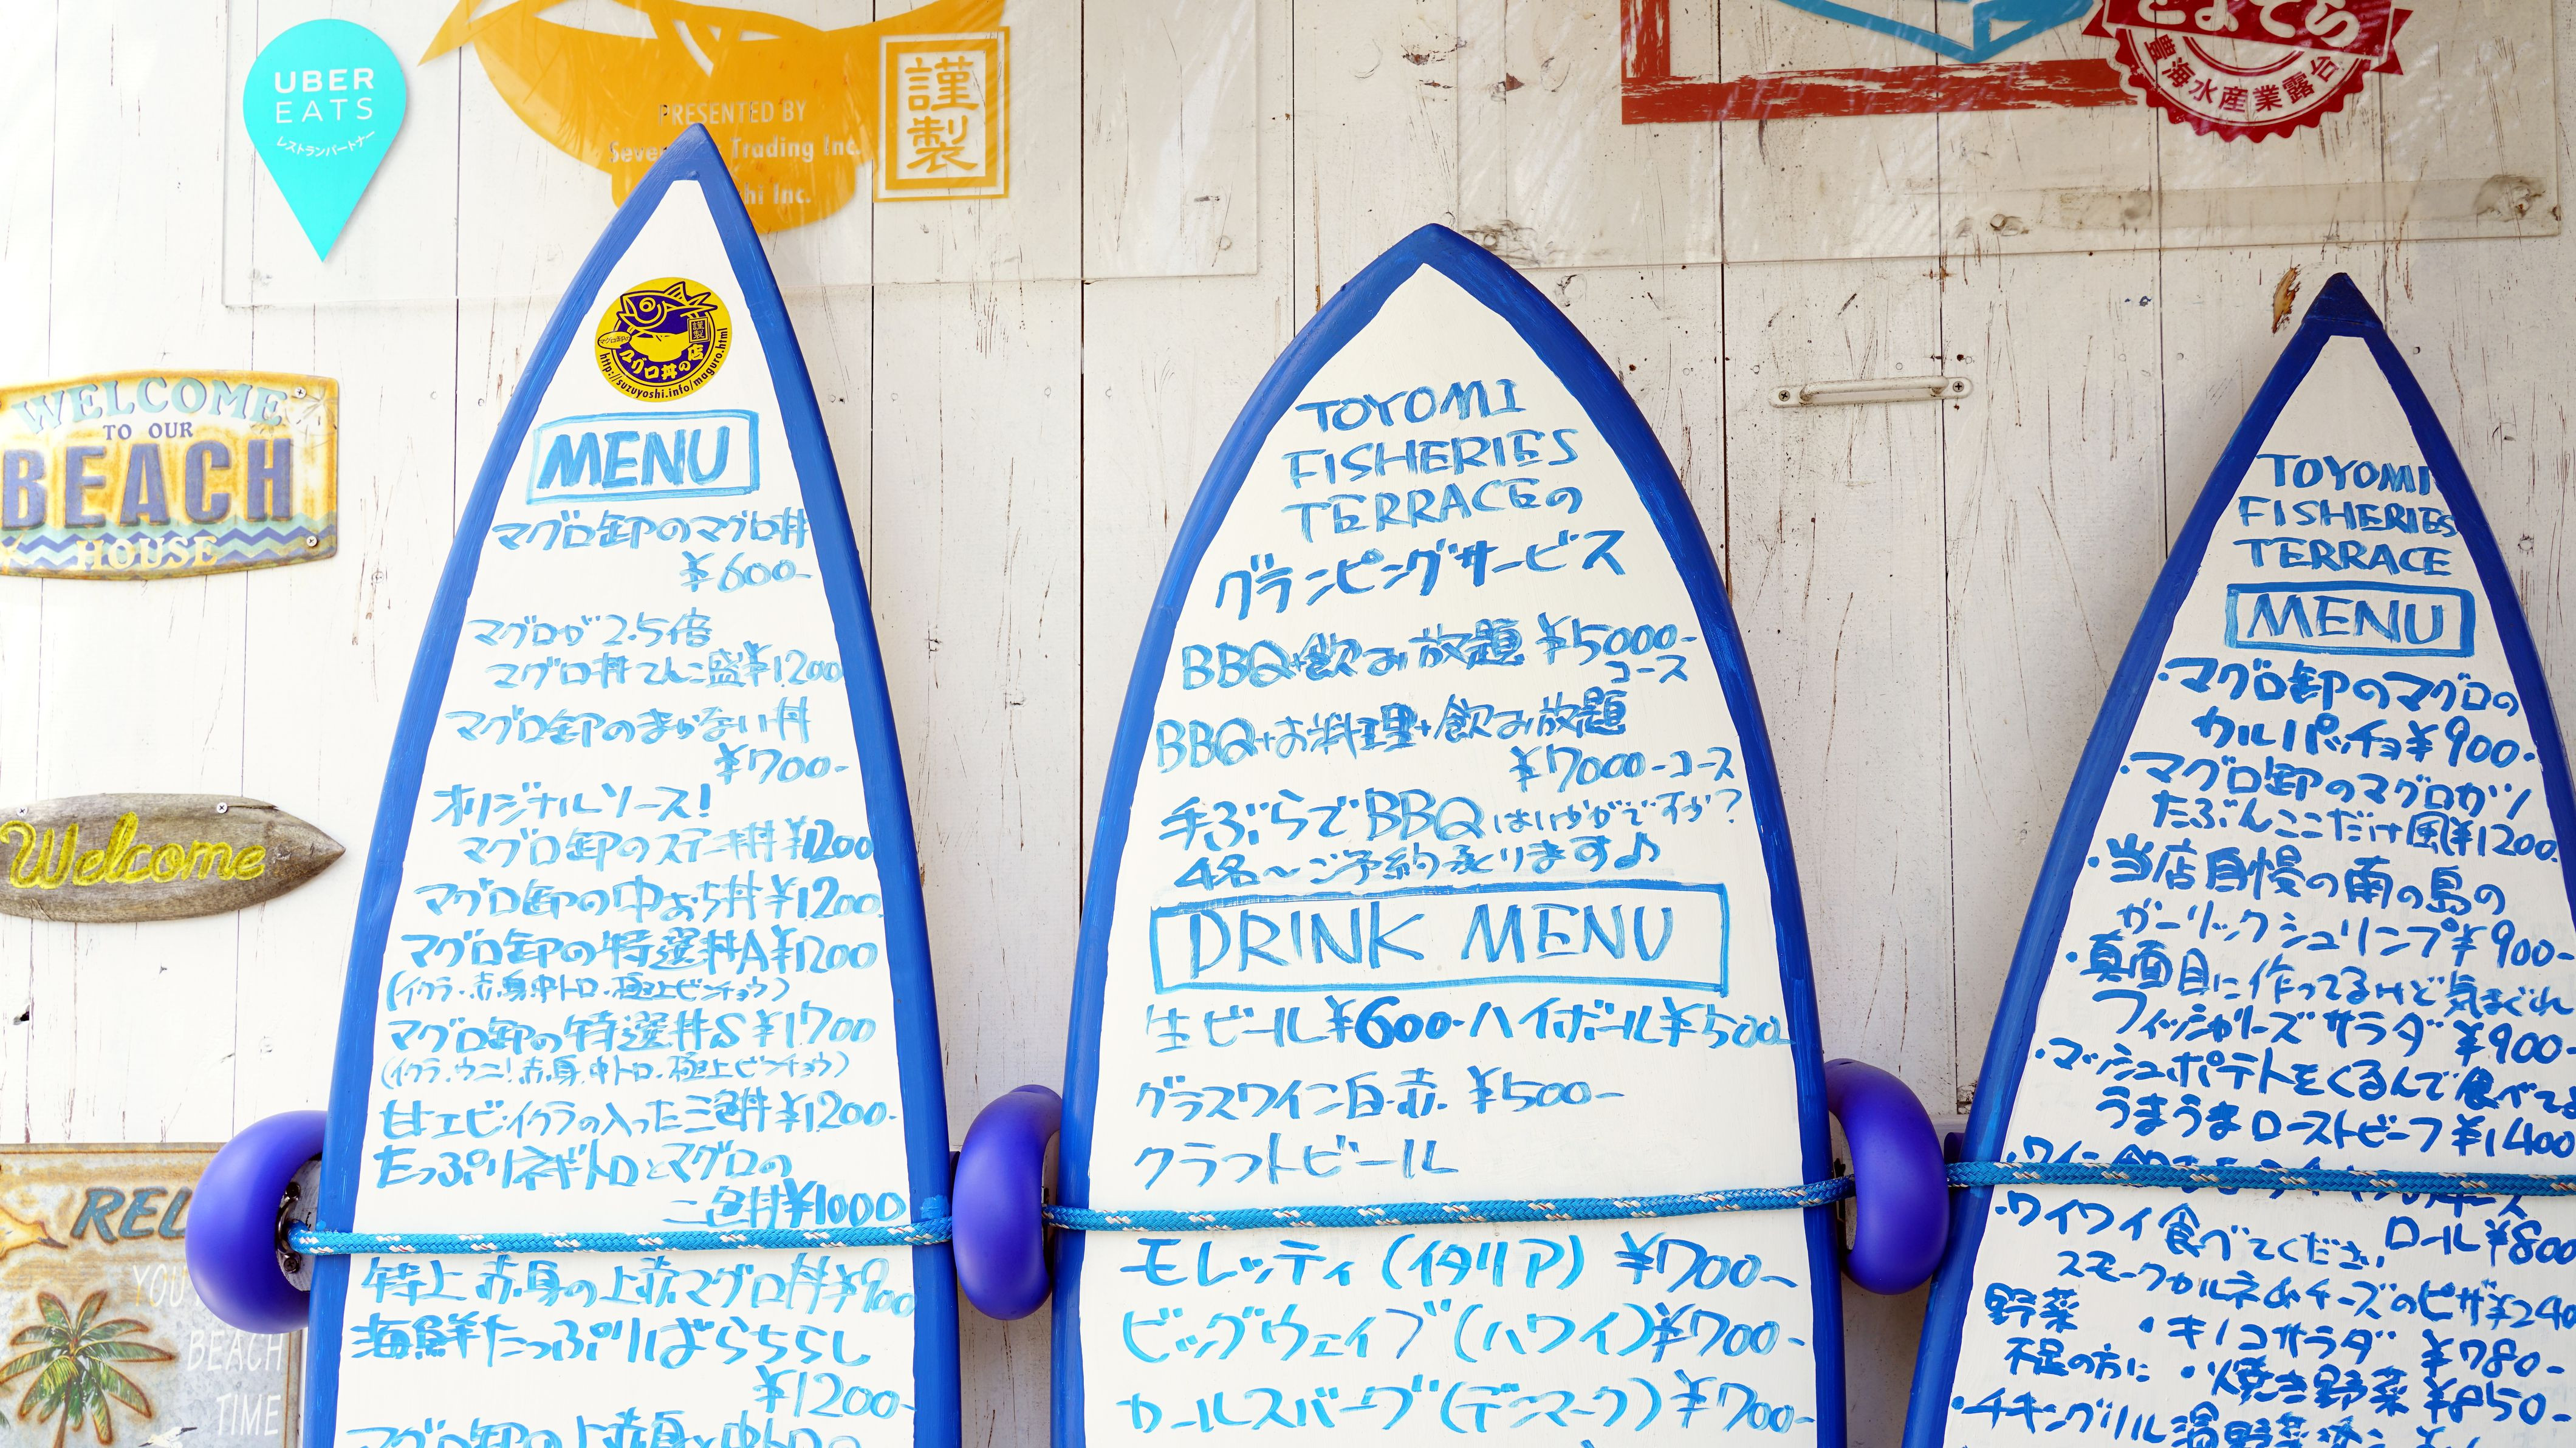 UBER
EATS
レストランパートナー
PRESENTED BY
Trading Inc.
hi Inc.
謹製
とよてら
豊海水産業露台
WELCOME
TO OUR
BEACH
HOUSE
Welcome
REL
YOU
BEACH
TIME
マグロ丼の店
謹製
http://suzuyoshi.info/maguro.html
MENU
マグロ卸のマグロ丼
¥600-
マグロが2.5倍
マグロ丼てんこ盛¥1200
マグロ卸のまかない丼
¥700-
オリジナルソース!
マグロ卸のステーキ丼¥1200
マグロ卸の中おち丼¥1200
マグロ卸の特選丼A¥1200
(イクラ・赤身・中トロ・極上ビンチョウ)
マグロ卸の特選丼S¥1700
(イクラ・ウニ!赤身・中トロ・極上ビンチョウ)
甘エビ・イクラの入った三色丼¥1200-
たっぷりネギトロとマグロの
二色丼¥1000
特上赤身の上赤マグロ丼¥900
海鮮たっぷりばらちらし
¥1200-
マグロ卸の上赤身と中トロの
TOYOMI
FISHERIES
TERRACEの
グランピングサービス
BBQ+飲み放題 ¥5000-
コース
BBQ+お料理+飲み放題
¥7000-コース
手ぶらでBBQはいかがですか?
4名~ご予約承ります♪
DRINK MENU
生ビール¥600-ハイボール¥500-
グラスワイン白・赤. ¥500-
クラフトビール
モレッティ(イタリア) ¥700-
ビッグウェイブ(ハワイ)¥700-
カールスバーグ(デンマーク)¥700-
TOYOMI
FISHERIES
TERRACE
MENU
・マグロ卸のマグロの
カルパッチョ¥900-
・マグロ卸のマグロカツ
たぶんここだけ風¥1200
・当店自慢の南の島の
ガーリックシュリンプ¥900-
・真面目に作ってるけど気まぐれ
フィッシャリーズサラダ¥900-
・マッシュポテトをくるんで食べてる
うまうまローストビーフ¥1400
ロール¥800
・ワイワイ食べてください
スモークカルネ&チーズのピザ¥240
野菜 ・キノコサラダ ¥780-
不足の方に ・焼き野菜¥850-
・チキングリル温野菜